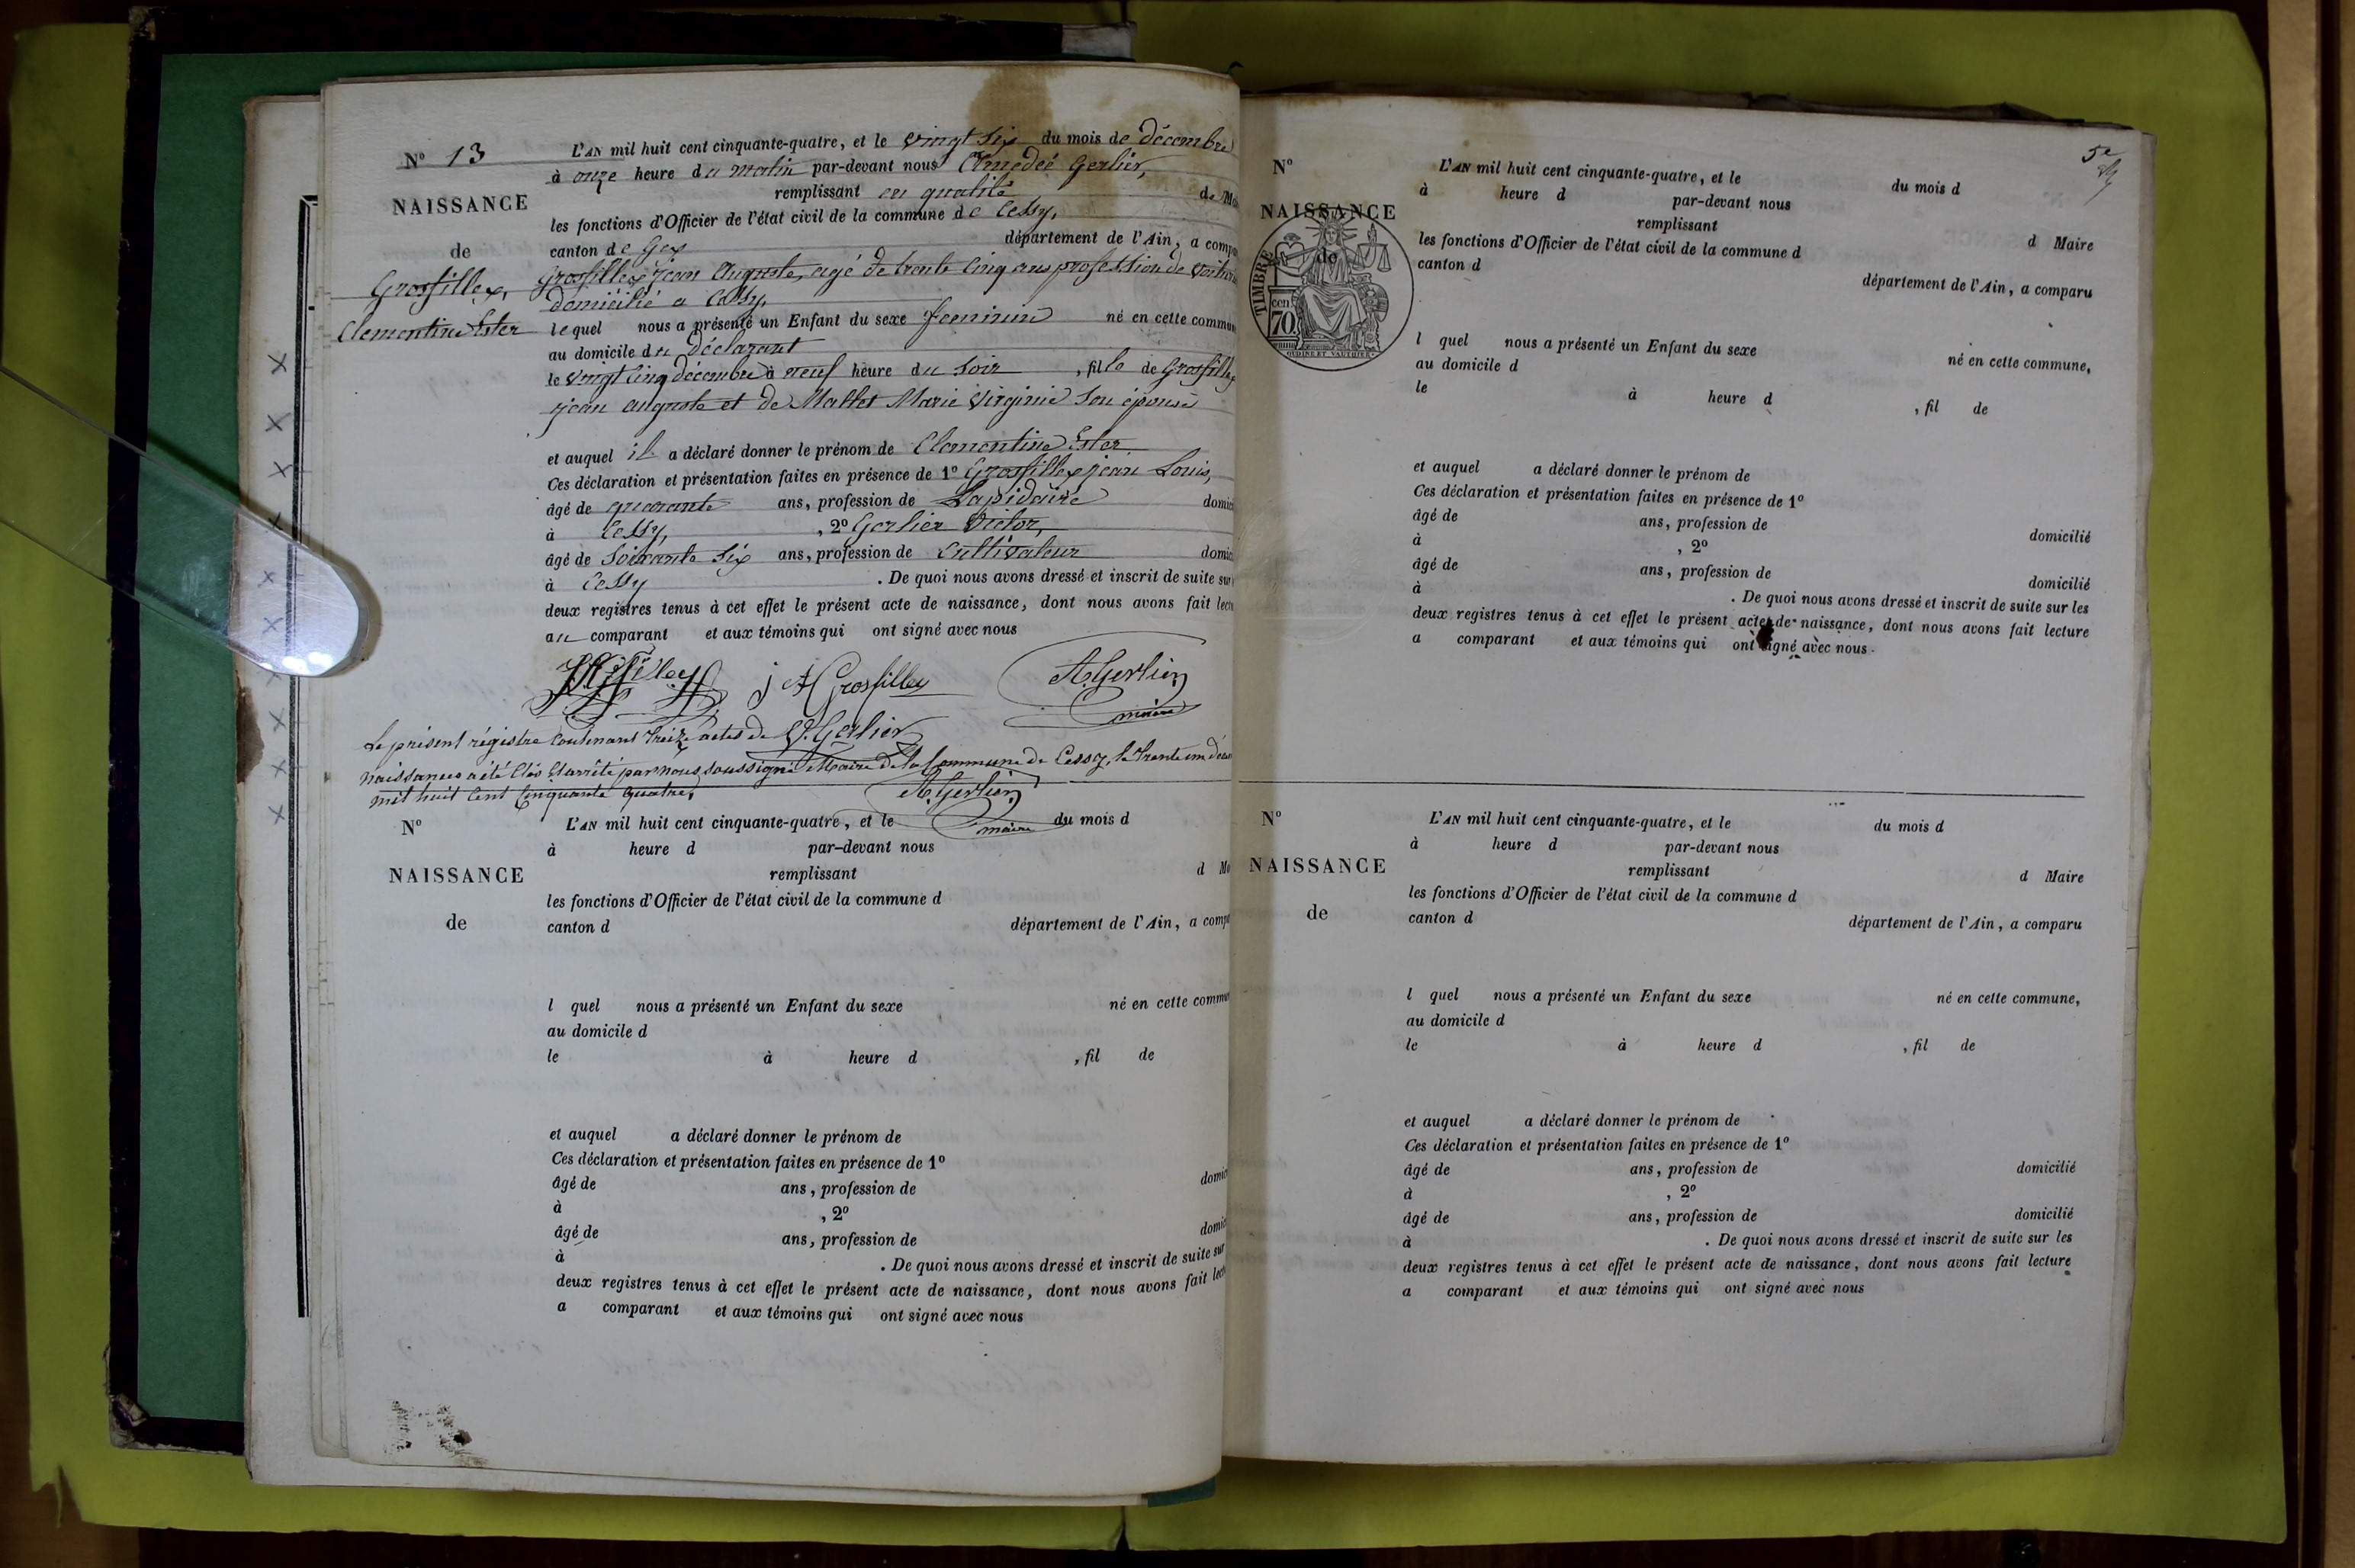 N° 13
NAISSANCE
de
Grosfillex,
Clementine Ester
L'AN mil huit cent cinquante-quatre, et le vingt six du mois de décembre
à onze heure du matin par-devant nous Amedeé Gerlier,
remplissant en qualité de
les fonctions d'Officier de l'état civil de la commune de Cessy,
canton de Gex département de l'Ain, a
Grosfillex jean Auguste, agé de trente cinq ans profession de
domicilié a Cessy,
lequel nous a présenté un Enfant du sexe feminin né en cette
au domicile du déclarant
le vingt cinq décembre à neuf heure du soir , fille de Grosfillex
jean auguste et de Mallet Marie Virginie son épouse
et auquel il a déclaré donner le prénom de Clementine Ester
Ces déclaration et présentation faites en présence de 1° Grosfillex jean Louis,
âgé de quarante ans, profession de Lapidaire
à Cessy, , 2° Gerlier Victor,
âgé de soixante six ans, profession de Cultivateur
à Cessy . De quoi nous avons dressé et inscrit de suite sur
deux registres tenus à cet effet le présent acte de naissance, dont nous avons fait
au comparant et aux témoins qui ont signé avec nous
j A Grosfillex
A. Gerlier
maire
V. Gerlier
Le présent régistre contenant treize actes de
naissances a été clos et arrêté par nous soussigné Maire de la Commune de Cessy, le trente un
mil huit cent cinquante quatre,
A. Gerlier
maire
N°
NAISSANCE
de
L'AN mil huit cent cinquante-quatre, et le du mois d
à heure d par-devant nous
remplissant d
les fonctions d'Officier de l'état civil de la commune d
canton d département de l'Ain, a
l quel nous a présenté un Enfant du sexe né en cette
au domicile d
le à heure d , fil de
et auquel a déclaré donner le prénom de
Ces déclaration et présentation faites en présence de 1°
âgé de ans, profession de
à , 2°
âgé de ans, profession de
à . De quoi nous avons dressé et inscrit de suite sur
deux registres tenus à cet effet le présent acte de naissance, dont nous avons fait
a comparant et aux témoins qui ont signé avec nous
5e
N°
NAISSANCE
de
TIMBRE
cen
70
OUDINE ET VAUTHIER
L'AN mil huit cent cinquante-quatre, et le du mois d
à heure d par-devant nous
remplissant d Maire
les fonctions d'Officier de l'état civil de la commune d
canton d département de l'Ain, a comparu
l quel nous a présenté un Enfant du sexe né en cette commune,
au domicile d
le à heure d , fil de
et auquel a déclaré donner le prénom de
Ces déclaration et présentation faites en présence de 1°
âgé de ans, profession de domicilié
à , 2°
âgé de ans, profession de domicilié
à . De quoi nous avons dressé et inscrit de suite sur les
deux registres tenus à cet effet le présent acte de naissance, dont nous avons fait lecture
a comparant et aux témoins qui ont signé avec nous.
N°
NAISSANCE
de
L'AN mil huit cent cinquante-quatre, et le du mois d
à heure d par-devant nous
remplissant d Maire
les fonctions d'Officier de l'état civil de la commune d
canton d département de l'Ain, a comparu
l quel nous a présenté un Enfant du sexe né en cette commune,
au domicile d
le à heure d , fil de
et auquel a déclaré donner le prénom de
Ces déclaration et présentation faites en présence de 1°
âgé de ans, profession de domicilié
à , 2°
âgé de ans, profession de domicilié
à . De quoi nous avons dressé et inscrit de suite sur les
deux registres tenus à cet effet le présent acte de naissance, dont nous avons fait lecture
a comparant et aux témoins qui ont signé avec nous